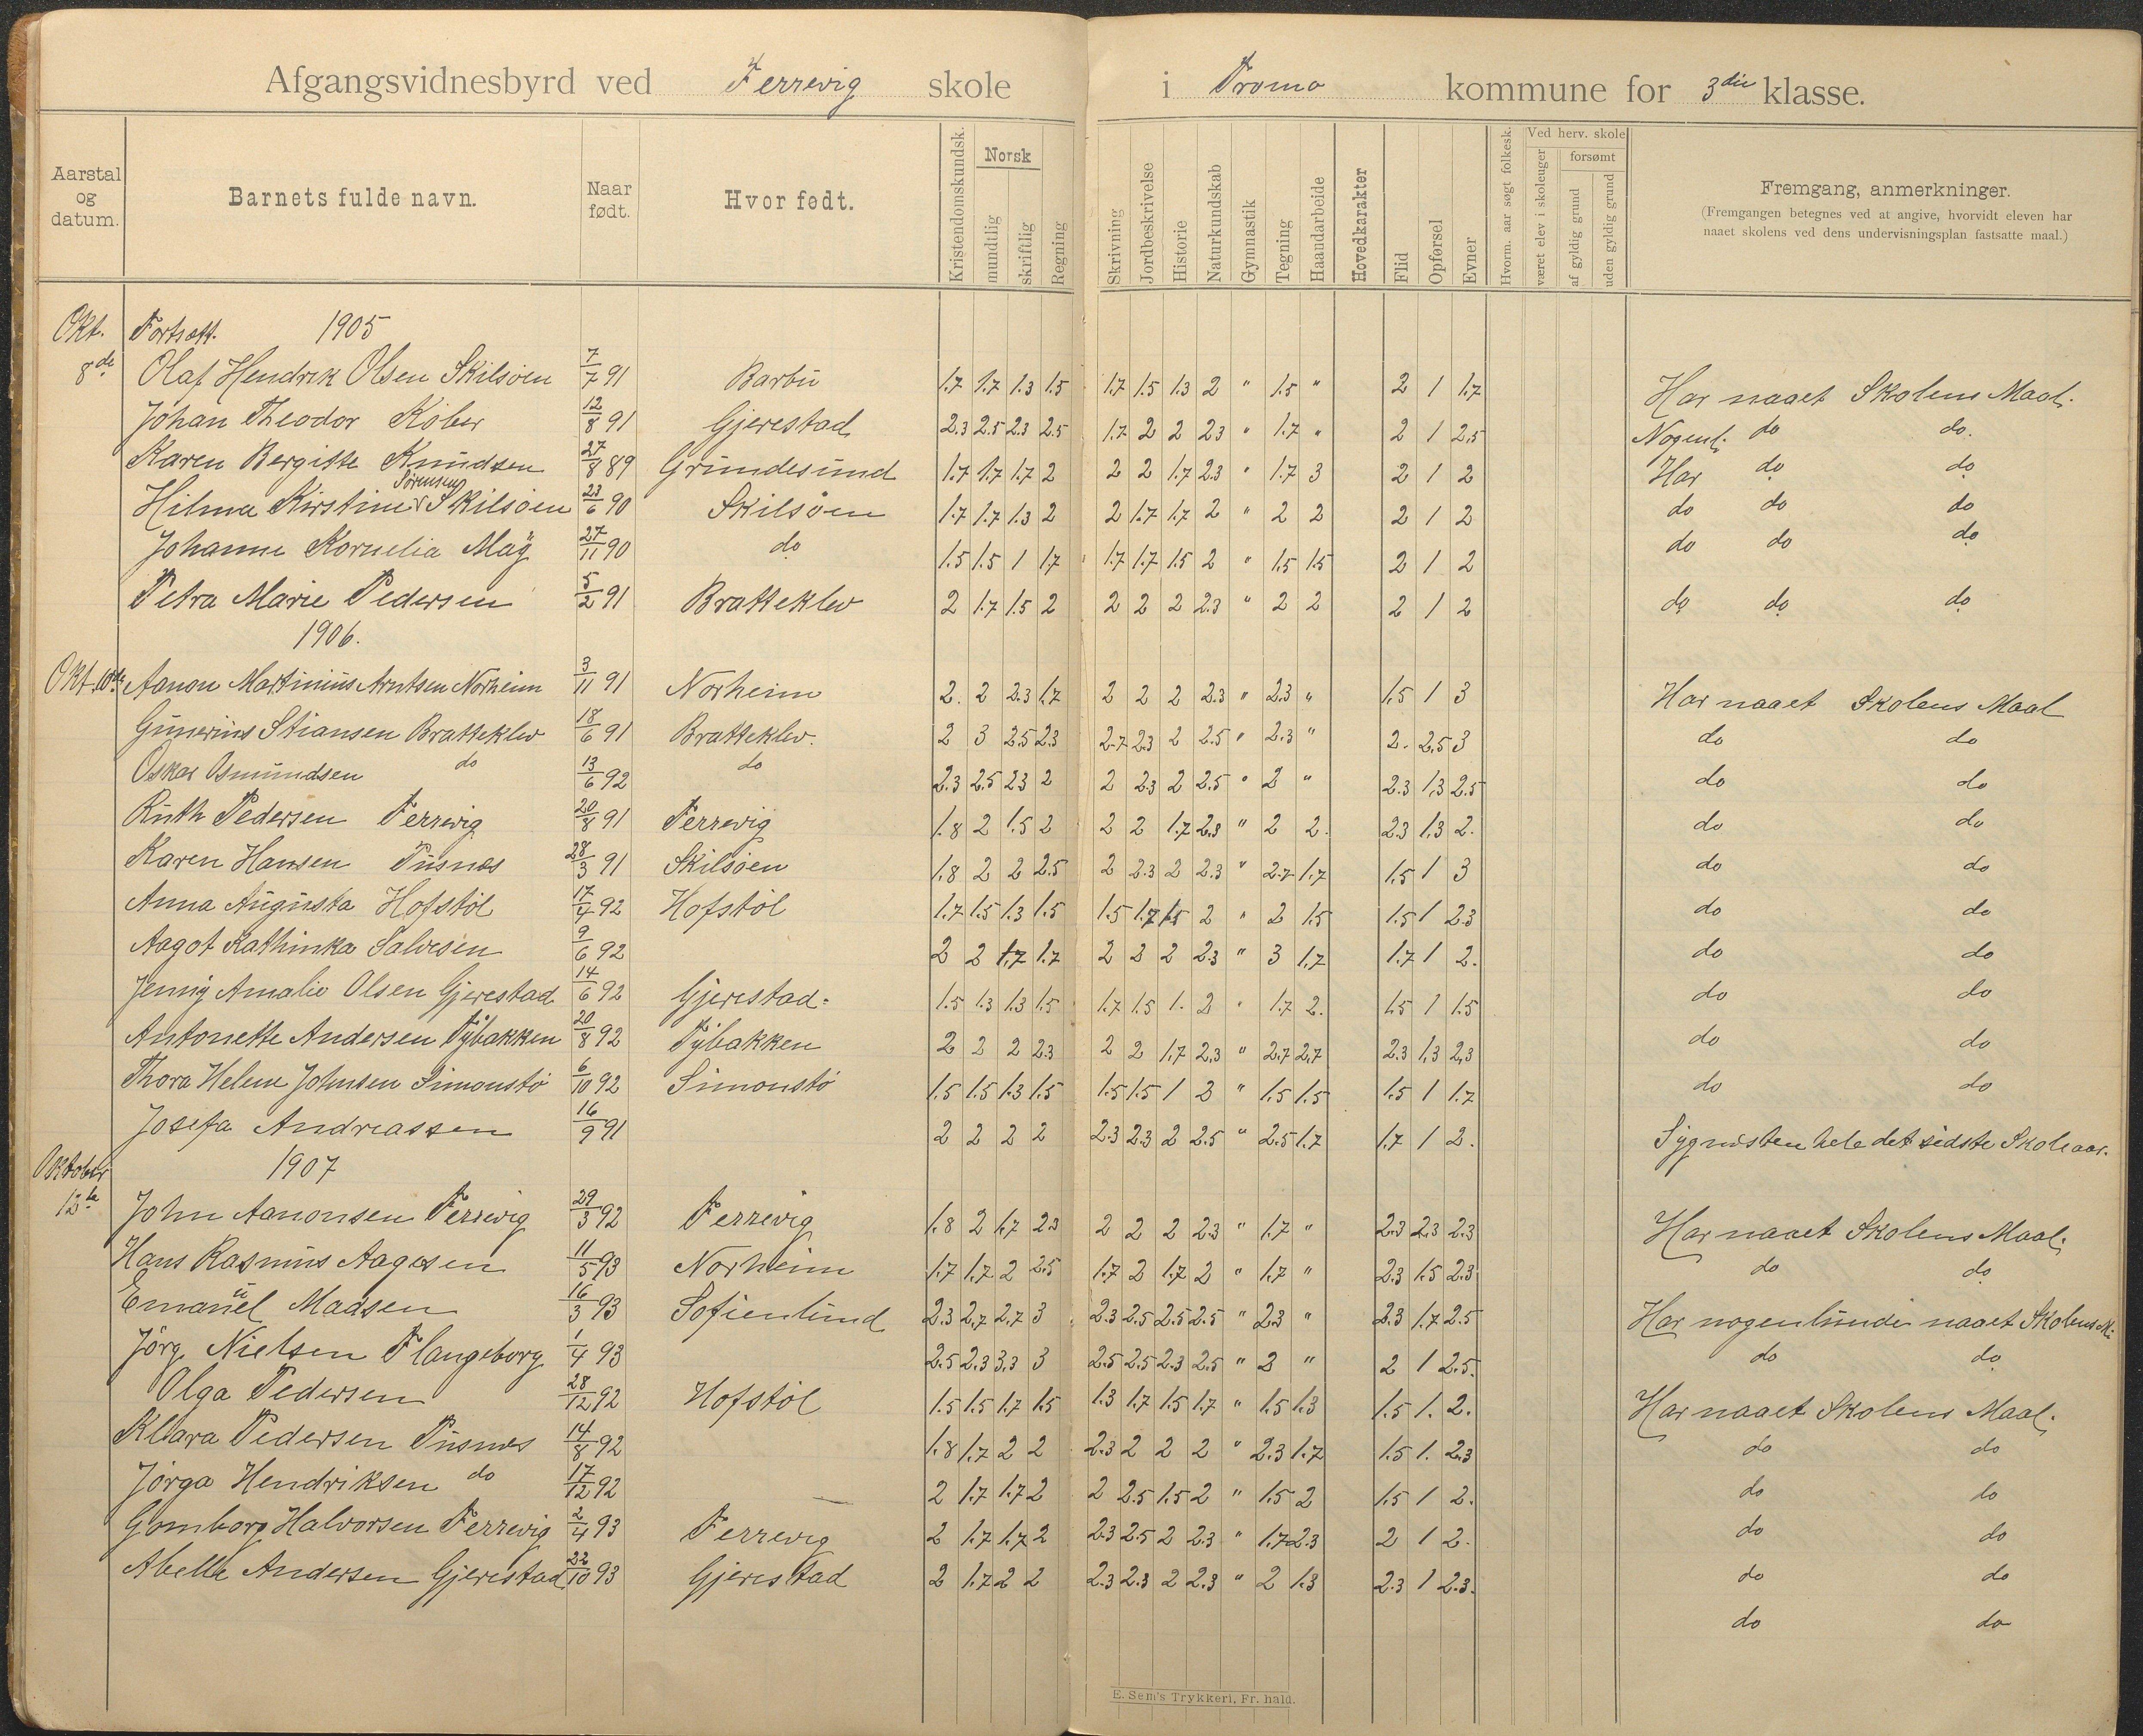 Afgangsvidnesbyrd ved Færrevig skole i Tromø kommune for 3die klasse.
Aarstal og datum. Barnets fulde navn. Naar født. Hvor født. Kristendomskundsk. Norsk mundtlig skriftlig Regning Skrivning Jordbeskrivelse Historie Naturkundskab Gymnastik Tegning Haandarbeide Hovedkarakter Flid Opførsel Evner Hvorm. aar søgt folkesk. Ved herv. skole været elev i skoleuger forsømt af gyldig grund uden gyldig grund Fremgang, anmerkninger.
(Fremgangen betegnes ved at angive, hvorvidt eleven har
naaet skolens ved dens undervisningsplan fastsatte maal.)
Okt. Fortsatt. 1905
8de Olaf Hendrik Olsen Skilsøen 7/7 91 Barbu 1.7 1.7 1.3 1.5 1.7 1.5 1.3 2 " 1.5 " 2 1 1.7 Har naaet Skolens Maal.
Johan Theodor Køber 12/8 91 Gjerestad 2.3 2.5 2.3 2.5 1.7 2 2 2.3 " 1.7 " 2 1 2.5 Nogenl. do do.
Karen Bergitte Knudsen 27/8 89 Grimdesund 1.7 1.7 1.7 2 2 2 1.7 2.3 " 1.7 3 2 1 2 Har do do
Hilma Kirstine Sørensen Skilsøen 23/6 90 Skilsøen 1.7 1.7 1.3 2 2 1.7 1.7 2 " 2 2 2 1 2 do do do
Johanne Kornelia Maÿ 27/11 90 do 1.5 1.5 1 1.7 1.7 1.7 1.5 2 " 1.5 1.5 2 1 2 do do do
Petra Marie Pedersen 5/2 91 Bratteklev 2 1.7 1.5 2 2 2 2 2.3 " 2 2 2 1 2 do do do
1906.
Okt. 10de Aanon Martinius Arntsen Norheim 3/11 91 Norheim 2. 2 2.3 1.7 2 2 2 2.3 " 2.3 " 1.5 1 3 Har naaet Skolens Maal
Gunerius Stiansen Bratteklev 18/6 91 Bratteklev. 2 3 2.5 2.3 2.7 2.3 2 2.5 " 2.3 " 2. 2.5 3 do do
Oskar Osmundsen do 13/6 92 do 2.3 2.5 2.3 2 2 2.3 2 2.5 " 2 " 2.3 1,3 2.5 do do
Ruth Pedersen Færrevig 20/8 91 Færrevig 1.8 2 1.5 2 2 2 1.7 2.3 " 2 2. 2.3 1.3 2. do do
Karen Hansen Pusnes 28/3 91 Skilsøen 1.8 2 2 2.5 2 2.3 2 2.3 " 2.7 1.7 1.5 1 3 do do
Anna Augusta Hofstøl 17/4 92 Hofstøl 1.7 1.5 1.3 1.5 1.5 1.7 1.5 2 " 2 1.5 1.5 1 2.3 do do
Aagot Kathinka Salvesen 9/6 92 2 2 1.7 1.7 2 2 2 2.3 " 3 1.7 1.7 1 2. do do
Jenny Amalie Olsen Gjerestad 14/6 92 Gjerestad. 1.5 1.3 1.3 1.5 1.7 1.5 1. 2 " 1.7 2. 1.5 1 1.5 do do
Antonette Andersen Tybakken 20/8 92 Tybakken 2 2 2 2.3 2 2 1.7 2.3 " 2.7 2.7 2.3 1,3 2,3 do do
Thora Helene Johnsen Simonstø 6/10 92 Simonstø 1.5 1.5 1.3 1.5 1.5 1.5 1 2 " 1.5 1.5 1.5 1 1.7 do do
Josefa Andreassen 16/9 91 2 2 2 2 2.3 2.3 2 2.5 " 2.5 1.7 1.7 1 2. Syg næsten hele det sidste Skoleaar.
Oktober 1907
12te John Aanonsen Færrevig 29/3 92 Færrevig 1.8 2 1.7 2.3 2 2 2 2.3 " 1.7 " 2.3 2.3 2.3 Har naaet Skolens Maal.
Hans Rasmus Aagesen 11/5 93 Norheim 1.7 1.7 2 2.5 1.7 2 1.7 2 " 1.7 " 2.3 1.5 2.3 do do
Emanuel Madsen 16/3 93 Sofienlund 2.3 2.7 2.7 3 2.3 2.5 2.5 2.5 " 2.3 " 2.3 1.7 2.5 Har nogenlunde naaet Skolens M:
Jørg. Nielsen Flangeborg 1/4 93 2.5 2.3 3.3 3 2.5 2.5 2.3 2.5 " 2 " 2 1 2.5. do do
Olga Pedersen 28/12 92 Hofstøl 1.5 1.5 1.7 1.5 1.3 1.7 1.5 1.7 " 1.5 1.3 1.5 1. 2. Har naaet Skolens Maal.
Klara Pedersen Pusnes 14/8 92 1.8 1.7 2 2 2.3 2 2 2 " 2.3 1.7 1.5 1. 2.3 do do
Jørga Hendriksen do 17/12 92 2 1.7 1.7 2 2 2.5 1.5 2 " 1.5 2 1.5 1 2. do do
Gomborg Halvorsen Færrevig 2/4 93 Færrevig 2 1.7 1.7 2 2.3 2.5 2 2.3 " 1.7 2.3 2 1 2. do do
Abelle Andersen Gjerestad 22/10 93 Gjerestad 2 1.7 2 2 2.3 2.3 2 2.3 " 2 1.3 2.3 1 2.3. do do
do do
E. Sem's Trykkeri, Fr. hald.